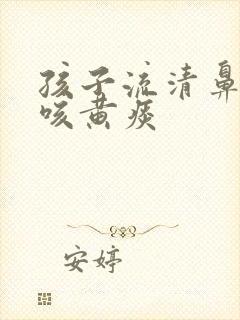 孩子流清鼻
咳黄痰
安婷